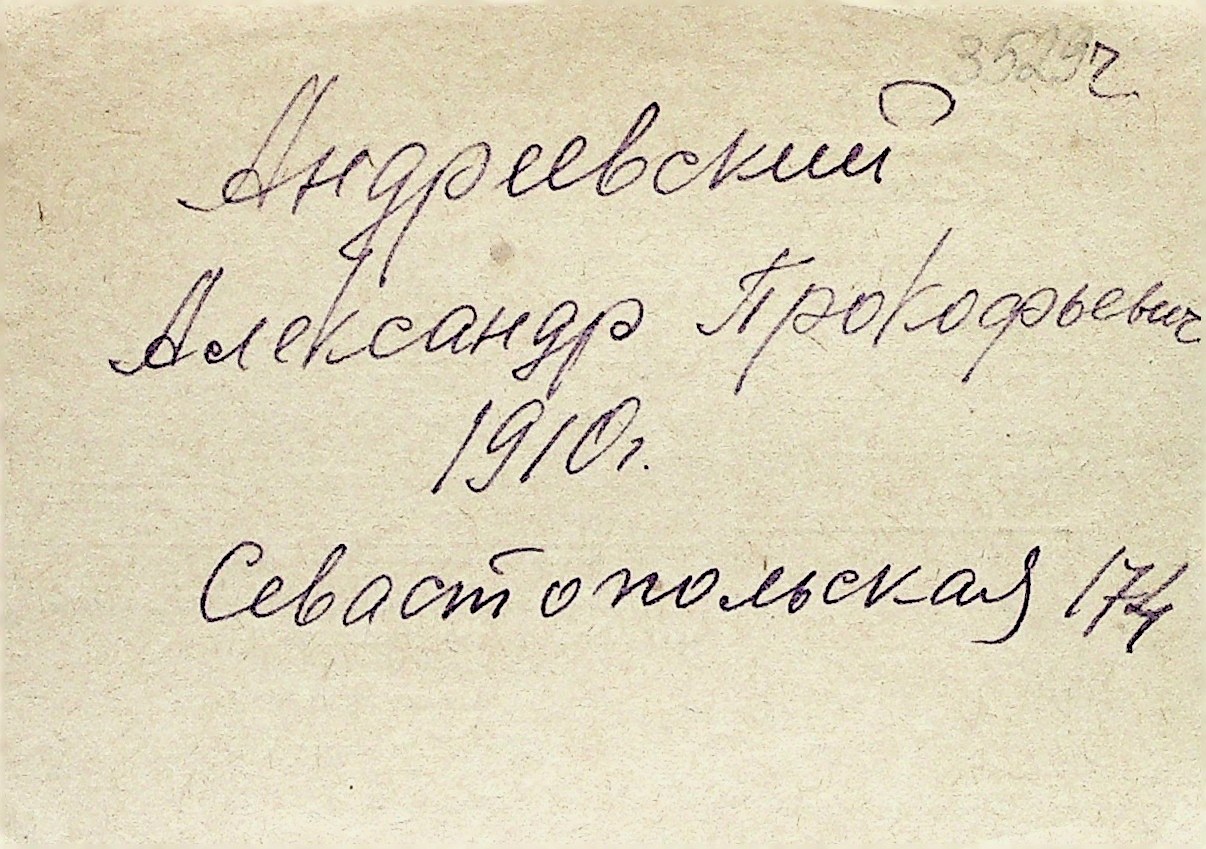 3529ч
Андреевский
Александр Прокофьевич
1910г.
Севастопольская 174